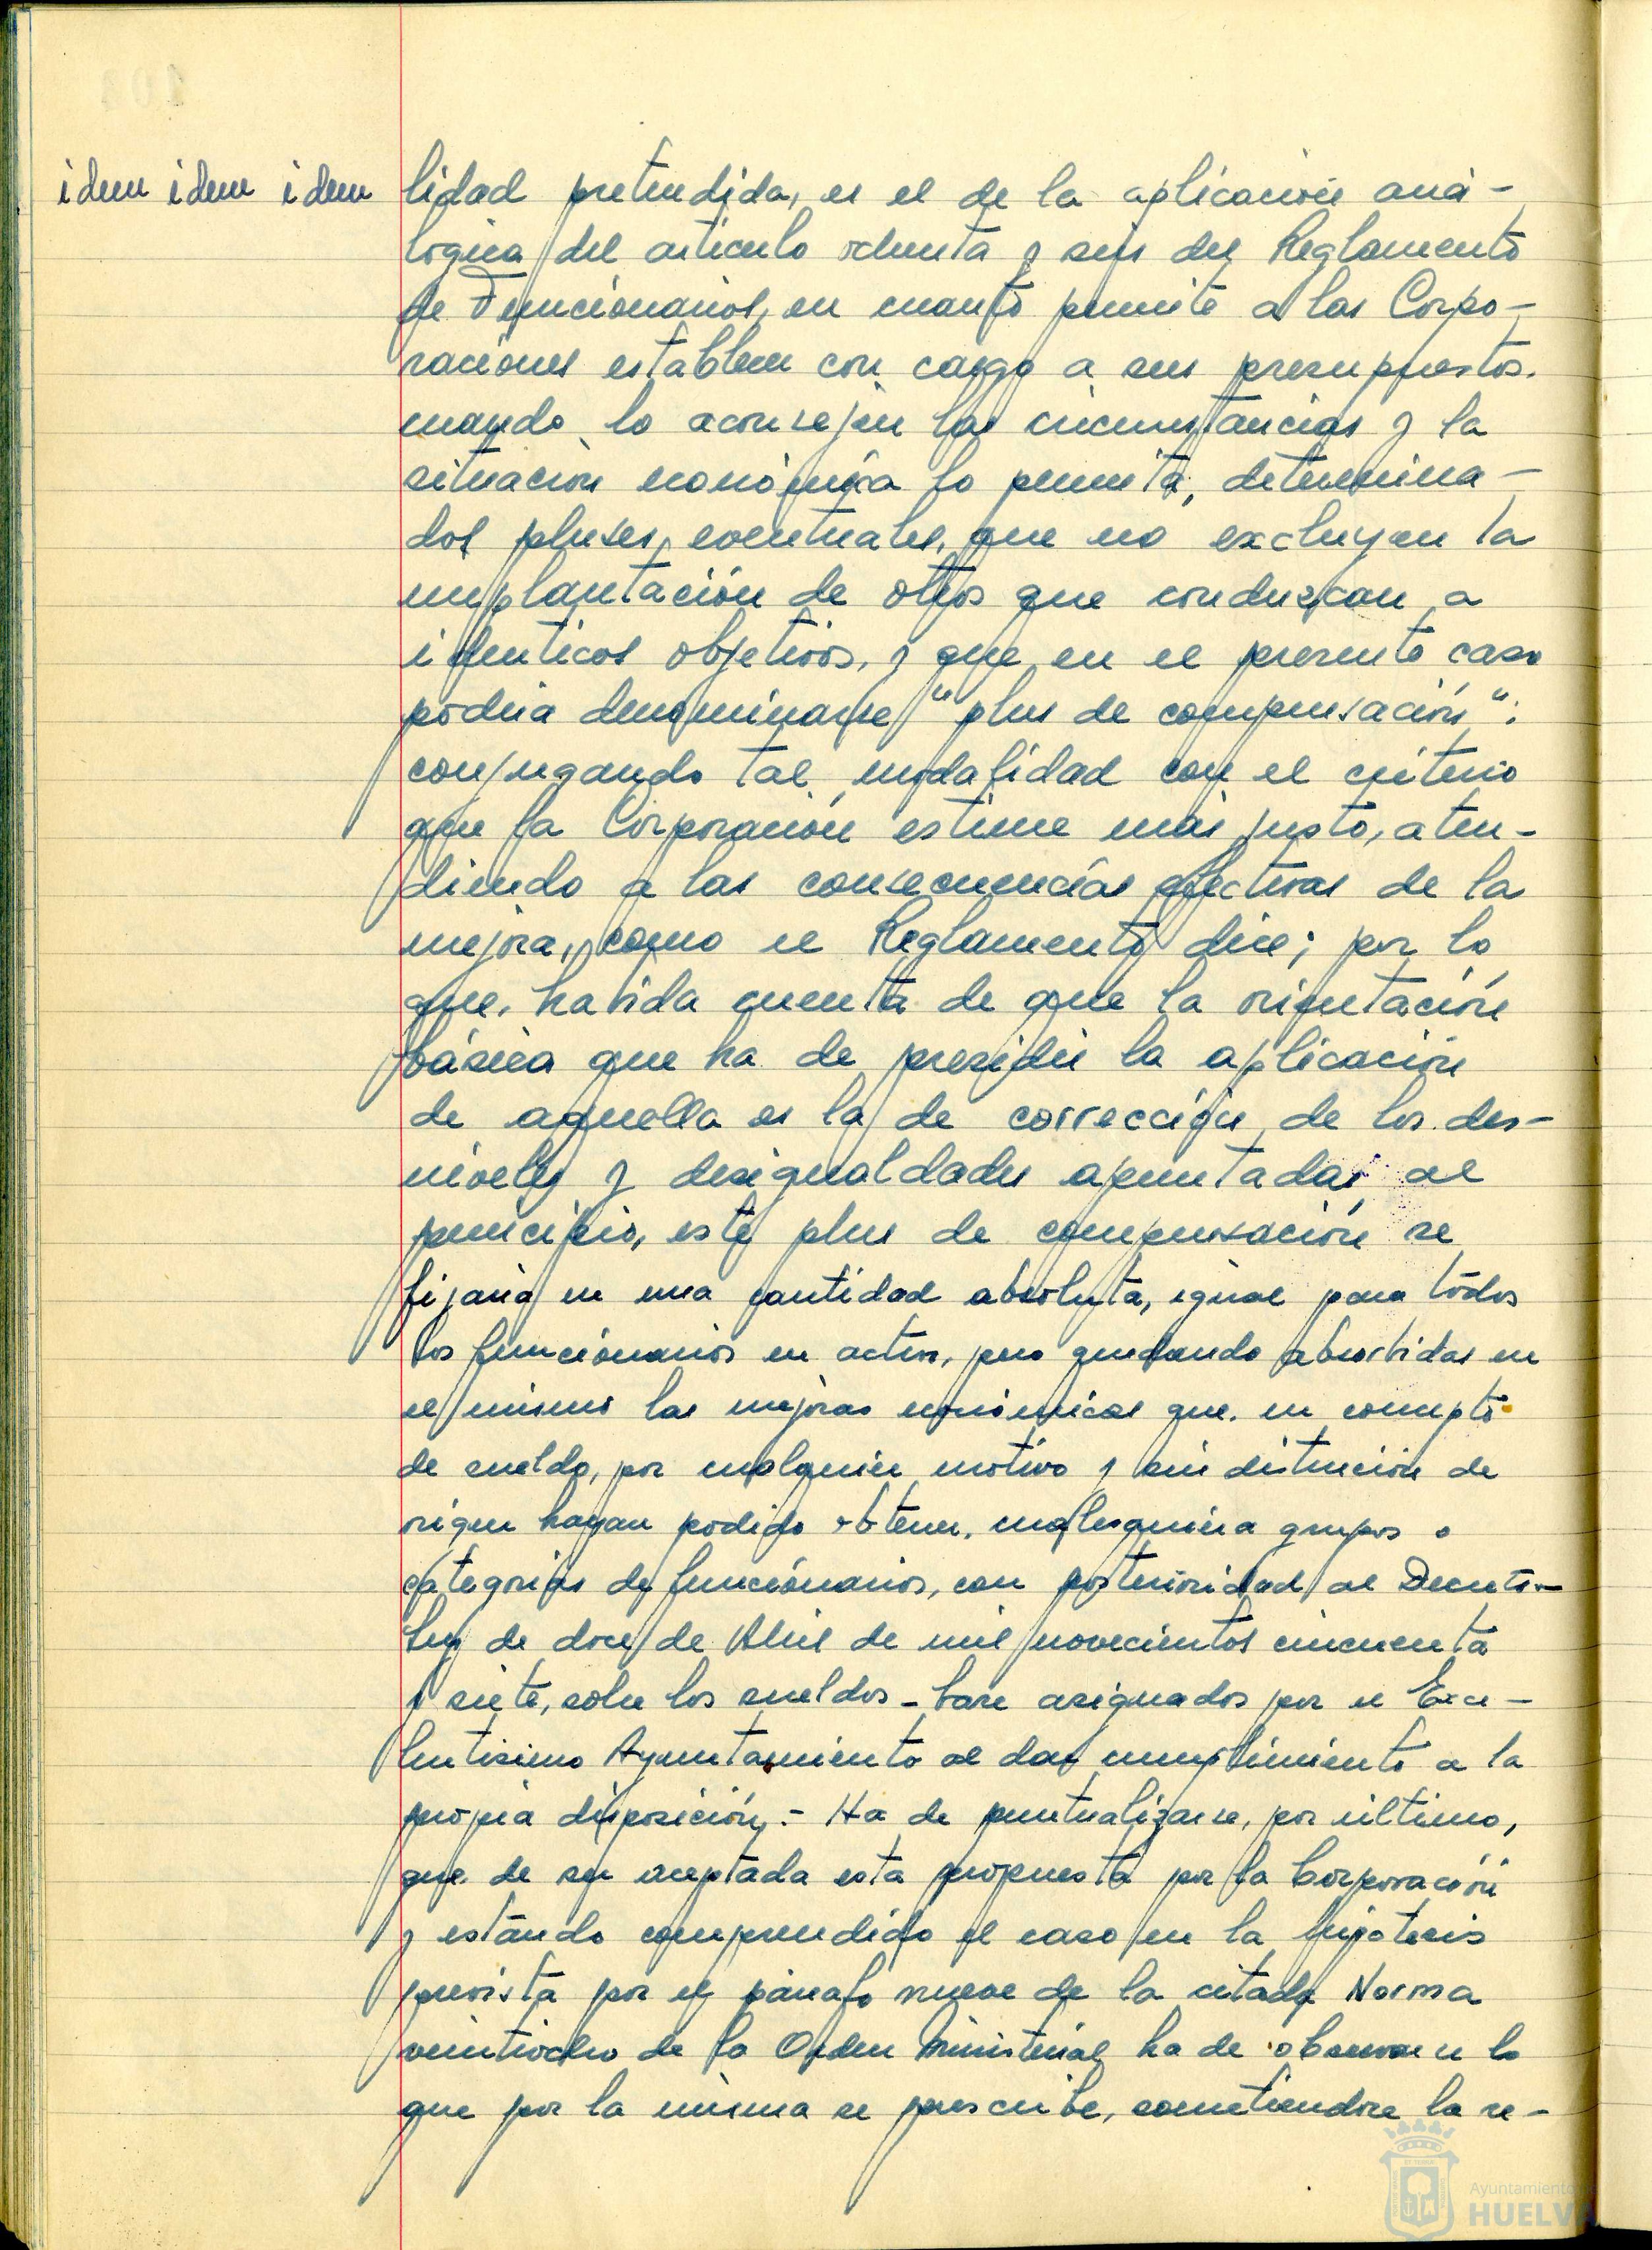 idem idem idem
lidad pretendida, es el de la aplicación aná-
lógica del artículo ochenta y seis del Reglamento
de Funcionarios, en cuanto permite a las Corpo-
raciones establecer con cargo a sus presupuestos.
cuando lo aconsejen las circunstancias y la
situación económica lo permita, determina-
dos pluses, eventuales, que no excluyen la
implantación de otros que conduzcan a
identicos objetivos, y que en el presente caso
podria denominarse "plus de compensación":
conjugando tal modalidad con el criterio
que la Corporación estime más justo, aten-
diendo a las consecuencias efectivas de la
mejora, como el Reglamento dice; por lo
que, habida cuenta de que la orientación
básica que ha de presidir la aplicación
de aquella es la de corrección de los des-
niveles y desigualdades apuntadas al
principio, este plus de compensación se
fijaria en una cantidad absoluta, igual para todos
los funcionarios en activo, pero quedando absorbidas en
el mismo las mejoras económicas que, en concepto
de sueldo, por cualquier motivo y sin distinción de
origen hayan podido obtener, cualesquiera grupos o
categorias de funcionarios, con posterioridad al Decreto-
Ley de doce de Abril de mil novecientos cincuenta
y siete, sobre los sueldos-base asignados por el Exce-
lentisimo Ayuntamiento al dar cumplimiento a la
propia disposición.- Ha de puntualizarse, por último,
que de ser aceptada esta propuesta por la Corporación
y estando comprendido el caso en la hipotesis
prevista por el párrafo nueve de la citada Norma
veintiocho de la Orden Ministerial ha de observarse lo
que por la misma se prescribe, sometiendose la re-
Ayuntamiento de
HUELVA